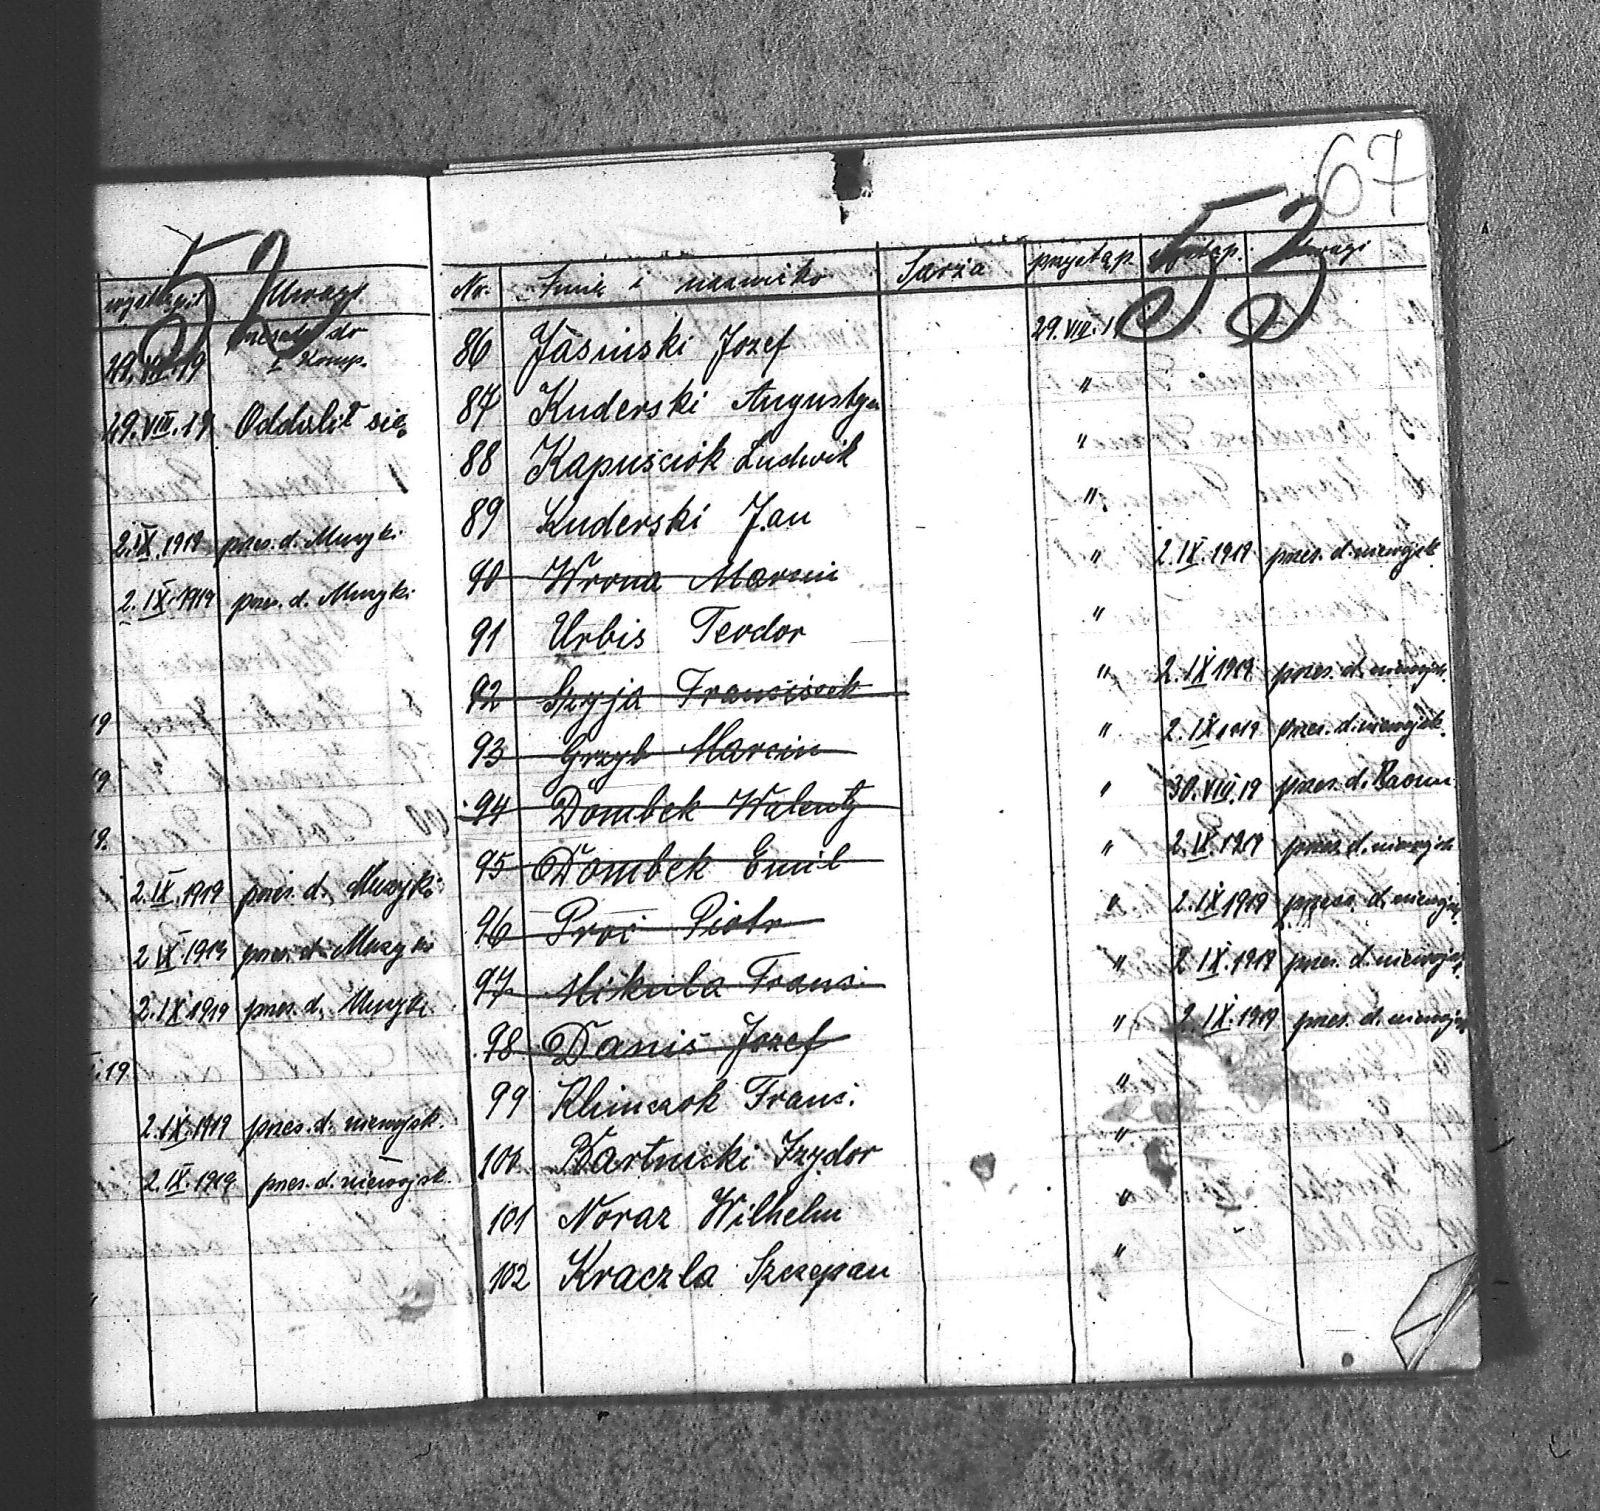 67
52
53
Uwagi
przeszedł do
29.VIII.19 I Komp.
29.VIII.19 Oddalił się
2.IX.1919 przes. d. Muzyki
2.IX.1919 przes. d. Muzyki
19
19
19.
2.IX.1919 przes. d. Muzyki
2.IX.1919 przes. d. Muzyki
2.IX.1919 przes. d. Muzyki
.19.
2.IX.1919 przes. d. niewojsk.
2.IX.1919 przes. d. niewojsk.
Nr. Imię i nazwisko Szarża przystąp. wystąp. Uwagi
86 Jasiński Jozef 29.VIII.19
87 Kuderski Augustyn "
88 Kapuściok Ludwik "
89 Kuderski Jan "
90 Wrona Marcin " 2.IX.1919 przes. d. niewojsk.
91 Urbis Teodor "
92 Szyja Franciszek " 2.IX.1919 przes. d. niewojsk.
93 Grzyb Marcin " 2.IX.1919 przes. d. niewojsk.
94 Dombek Walenty " 30.VIII.19 przes. d.
95 Dombek Emil " 2.IX.1919 przes. d. niewojsk.
96 Proć Piotr " 2.IX.1919 przes. d. niewojsk.
97 Mikula Franc. " 2.IX.1919 przes. d. niewojsk.
98 Daniś Jozef " 2.IX.1919 przes. d. niewojsk.
99 Klimczok Franc. "
100 Bartnicki Izydor "
101 Noraz Wilhelm "
102 Kraczla Szczepan "